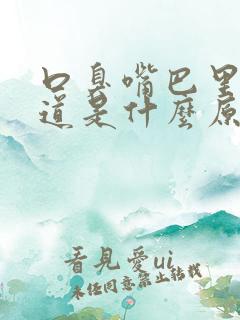 口臭嘴巴里
道是什麼原
看見愛ui
未经同意禁止转载